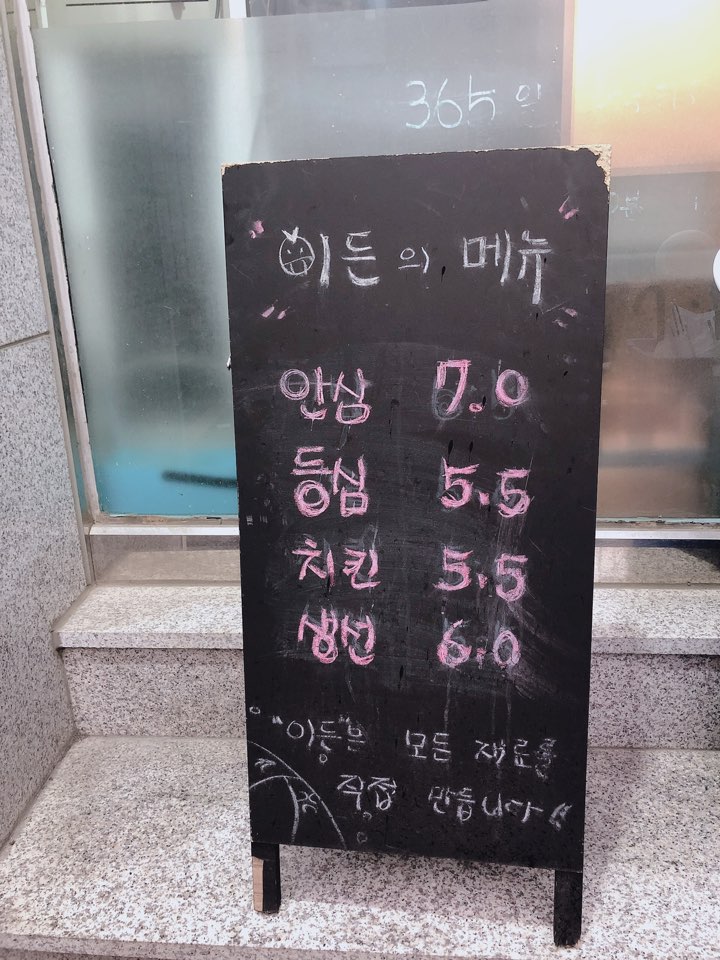 365일
이든의 메뉴
안심 7.0
등심 5.5
치킨 5.5
생선 6.0
"이등"은 모든 재료를
직접 만듭니다